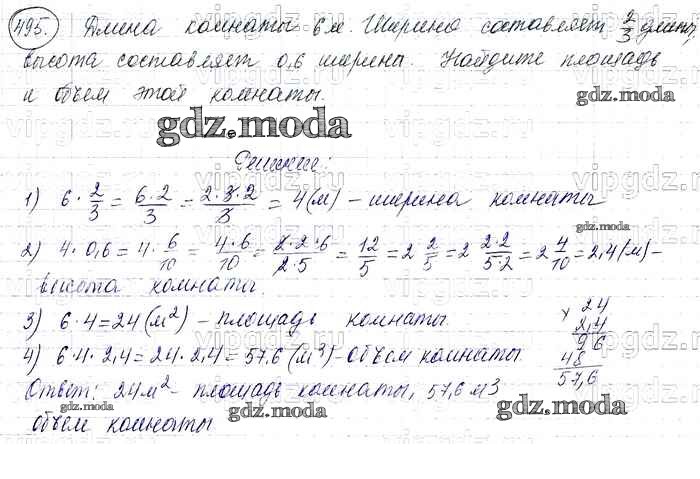 495. Длина комнаты 6 м. Ширина составляет 2/3 длины,
высота составляет 0,6 ширины. Найдите площадь
и объем этой комнаты.
gdz.moda
gdz.moda
Решение:
1) 6 · 2/3 = 6·2/3 = 2·3·2/3 = 4 (м) – ширина комнаты
2) 4 · 0,6 = 4 · 6/10 = 4·6/10 = 2·2·6/2·5 = 12/5 = 2 2/5 = 2 2·2/5·2 = 2 4/10 = 2,4 (м) –
высота комнаты.
3) 6 · 4 = 24 (м²) – площадь комнаты.
4) 6 · 4 · 2,4 = 24 · 2,4 = 57,6 (м³) – объем комнаты.
× 24
2,4
96
48
57,6
Ответ: 24 м² – площадь комнаты, 57,6 м3
объем комнаты
gdz.moda
gdz.moda
gdz.moda
vipgdz.com